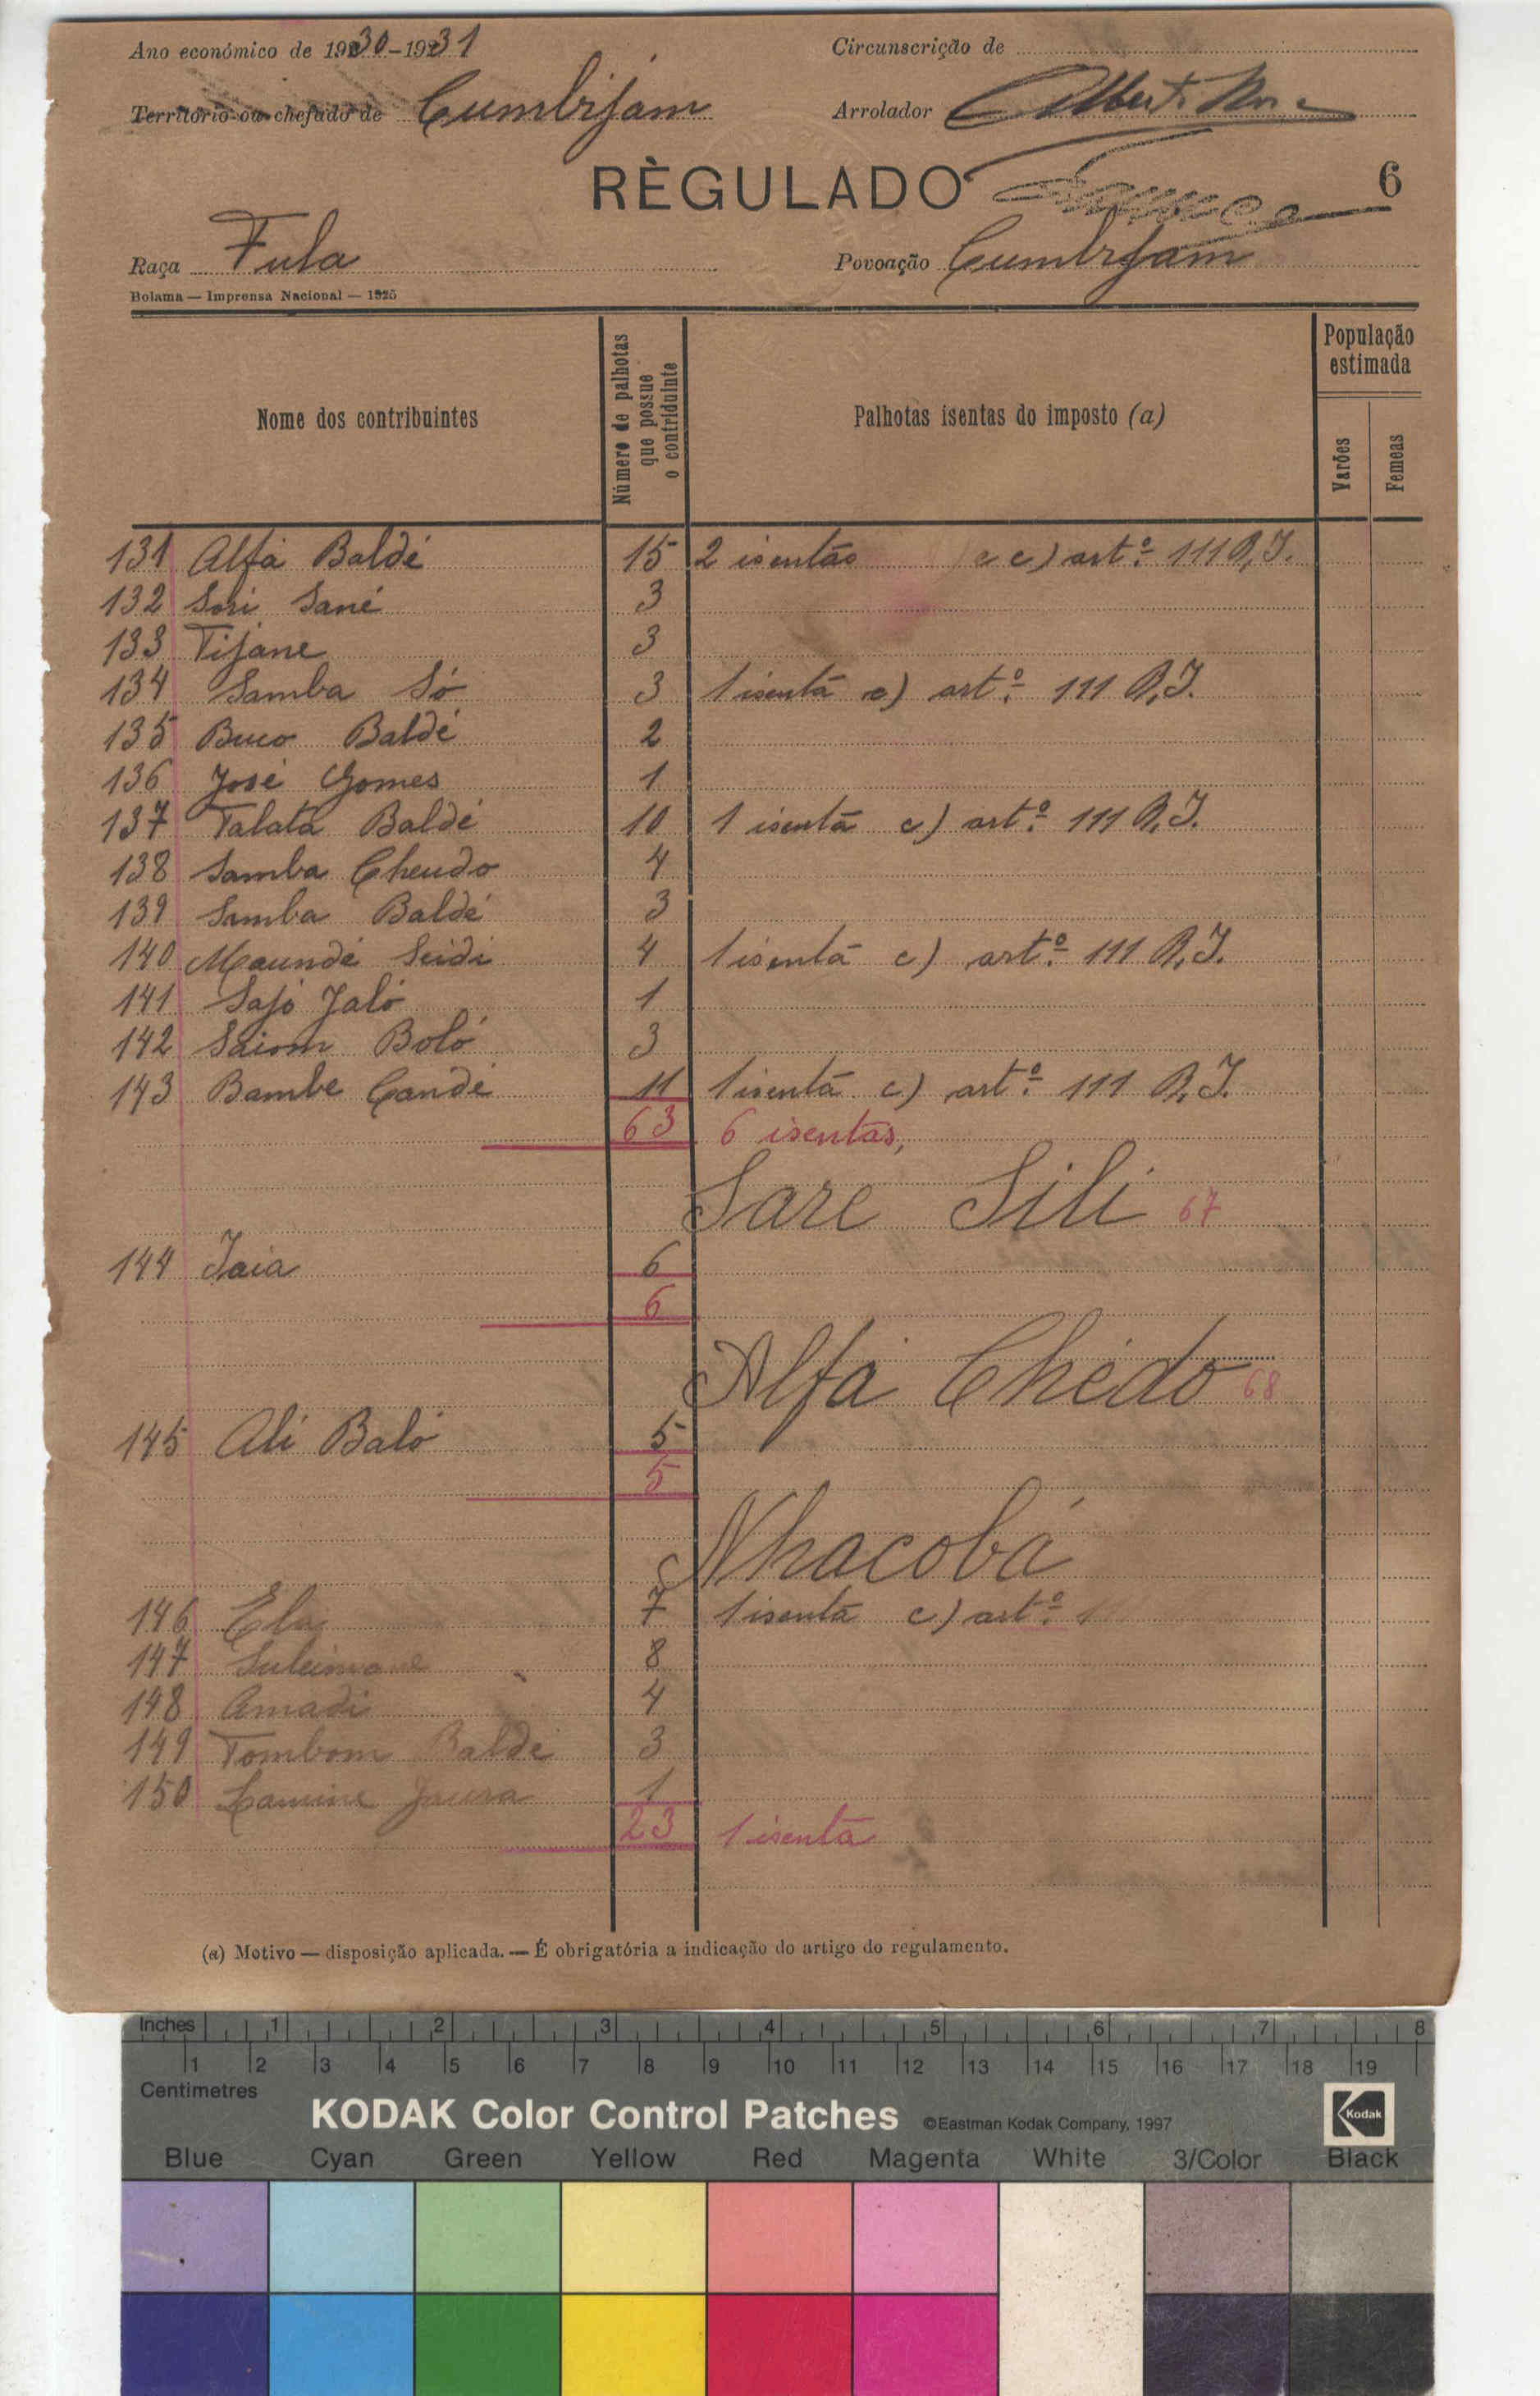 Ano económico de 1930-1931
Circunscrição de
Território ou chefado de Cumbijam
Arrolador
RÈGULADO
6
Raça Fula
Povoação Cumbijam
Bolama — Imprensa Nacional — 1925
Nome dos contribuintes
Número de palhotas que possue o contriduinte
Palhotas isentas do imposto (a)
População estimada
Varões
Femeas
131 Alfa Baldé 15 2 isentas c c) artº 111 R,I.
132 Sori Sané 3
133 Tijane 3
134 Samba Só 3 1 isenta c) artº 111 R,I.
135 Buco Baldé 2
136 José Gomes 1
137 Talata Baldé 10 1 isenta c) artº 111 R.I.
138 Samba Cheudo 4
139 Samba Baldé 3
140 Maundé Seidi 4 1 isenta c) artº 111 R,I.
141 Sajó Jaló 1
142 Saiom Boló 3
143 Bambe Candé 11 1 isenta c) artº 111 R,I.
63 6 isentas,
Sare Sili 67
144 Iaia 6
6
Alfa Chédo 68
145 Ali Baló 5
5
Nhacobá
146 Ela 7 1 isenta c) artº
147 Suleimane 8
148 Amadi 4
149 Tombom Baldé 3
150 Lamine Jaura 1
23 1 isenta
(a) Motivo — disposição aplicada. — É obrigatória a indicação do artigo do regulamento.
Inches 1 2 3 4 5 6 7 8
1 2 3 4 5 6 7 8 9 10 11 12 13 14 15 16 17 18 19
Centimetres
KODAK Color Control Patches ©Eastman Kodak Company, 1997
Kodak
Blue Cyan Green Yellow Red Magenta White 3/Color Black